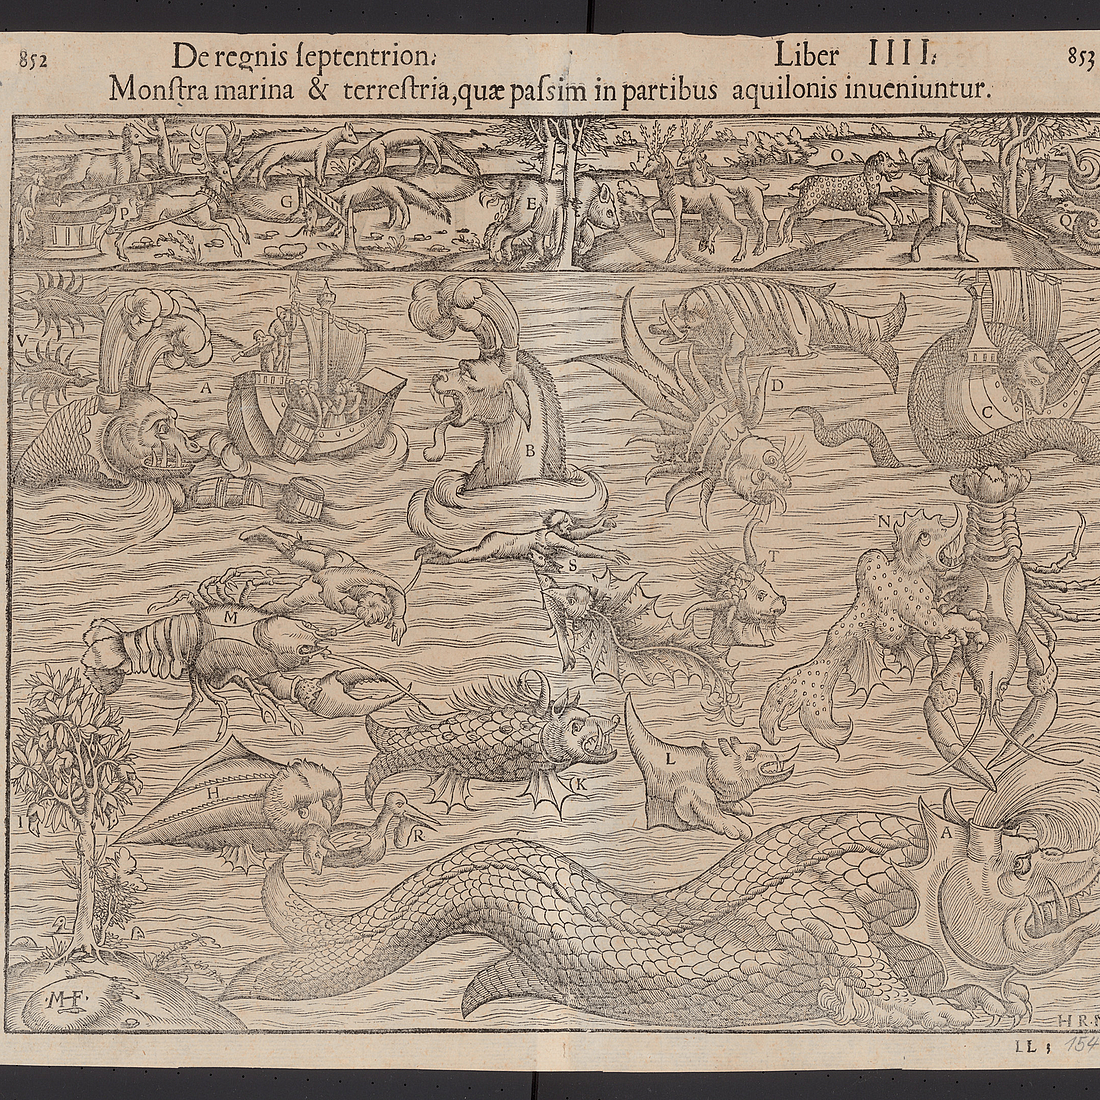 852 De regnis ſeptentrion: Liber IIII. 853
Monſtra marina & terreſtria, quæ paſsim in partibus aquilonis inueniuntur.
P
G
E
O
Q
V
A
B
D
C
S
T
N
M
K
L
H
I
R
A
·MF·
H R
LL 3 154